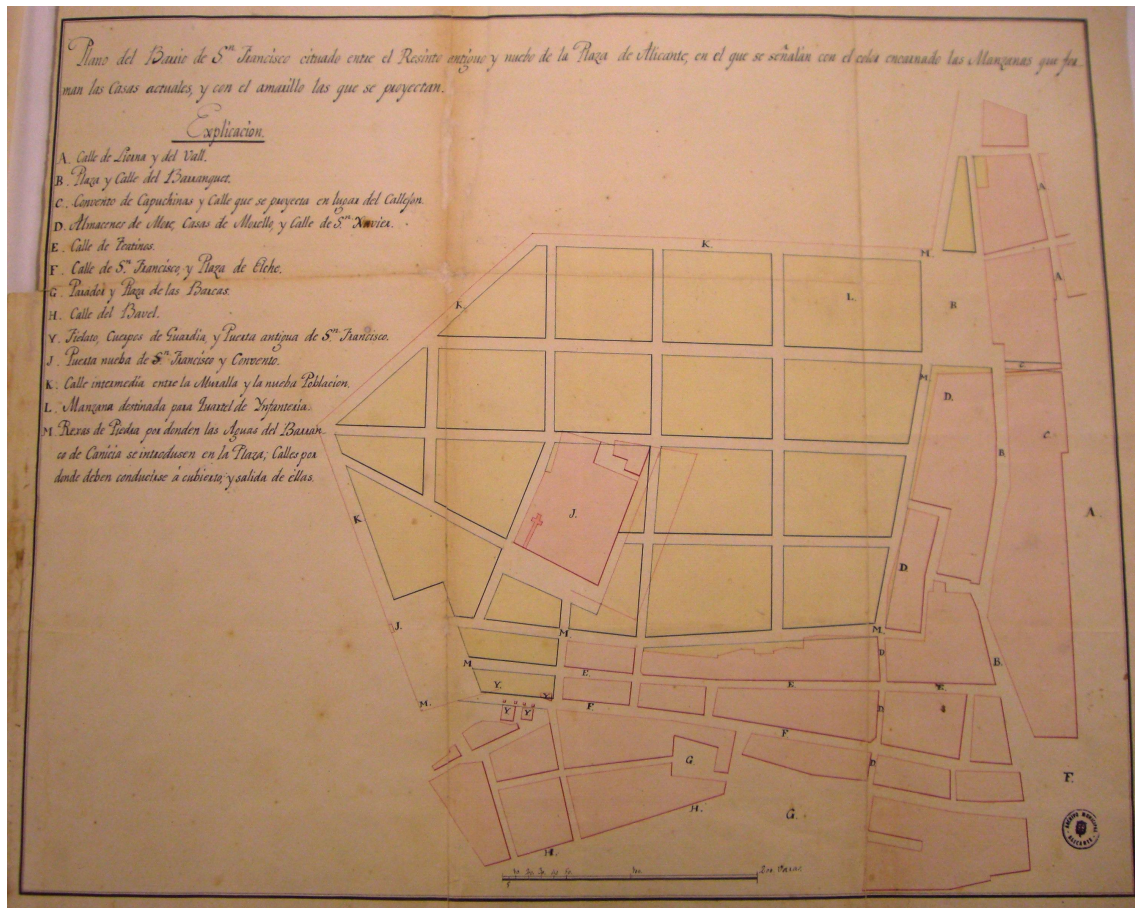 Plano del Barrio de Sn. Francisco cituado entre el Resinto antiguo y nuebo de la Plaza de Alicante, en el que se señalan con el color encarnado las Manzanas que for-
man las Casas actuales, y con el amarillo las que se proyectan.
Explicacion.
A. Calle de Liorna y del Vall.
B. Plaza y Calle del Barranquet.
C. Convento de Capuchinas y Calle que se proyecta en lugar del Callejon.
D. Almacenes de More, Casas de Morello, y Calle de Sn. Xavier.
E. Calle de Teatinos.
F. Calle de Sn. Francisco, y Plaza de Elche.
G. Parador y Plaza de las Barcas.
H. Calle del Bavel.
Y. Fielato, Cuerpos de Guardia, y Puerta antigua de Sn. Francisco.
J. Puerta nueba de Sn. Francisco y Convento.
K. Calle intermedia entre la Muralla y la nueba Poblacion.
L. Manzana destinada para Quartel de Ynfanteria.
M. Rexas de Piedra por donden las Aguas del Barran-
co de Canicia se introdusen en la Plaza; Calles por
donde deben conducirse á cubierto, y salida de ellas.
A.
K. M. B. A.
K. L.
M. C.
D. C.
B.
K J. A.
D.
J. M M. D. B.
M E. E. E.
Y. Y.
M. F. D.
Y Y F
G. D. F.
H. G.
H.
200 Varas.
ARCHIVO MUNICIPAL
ALICANTE